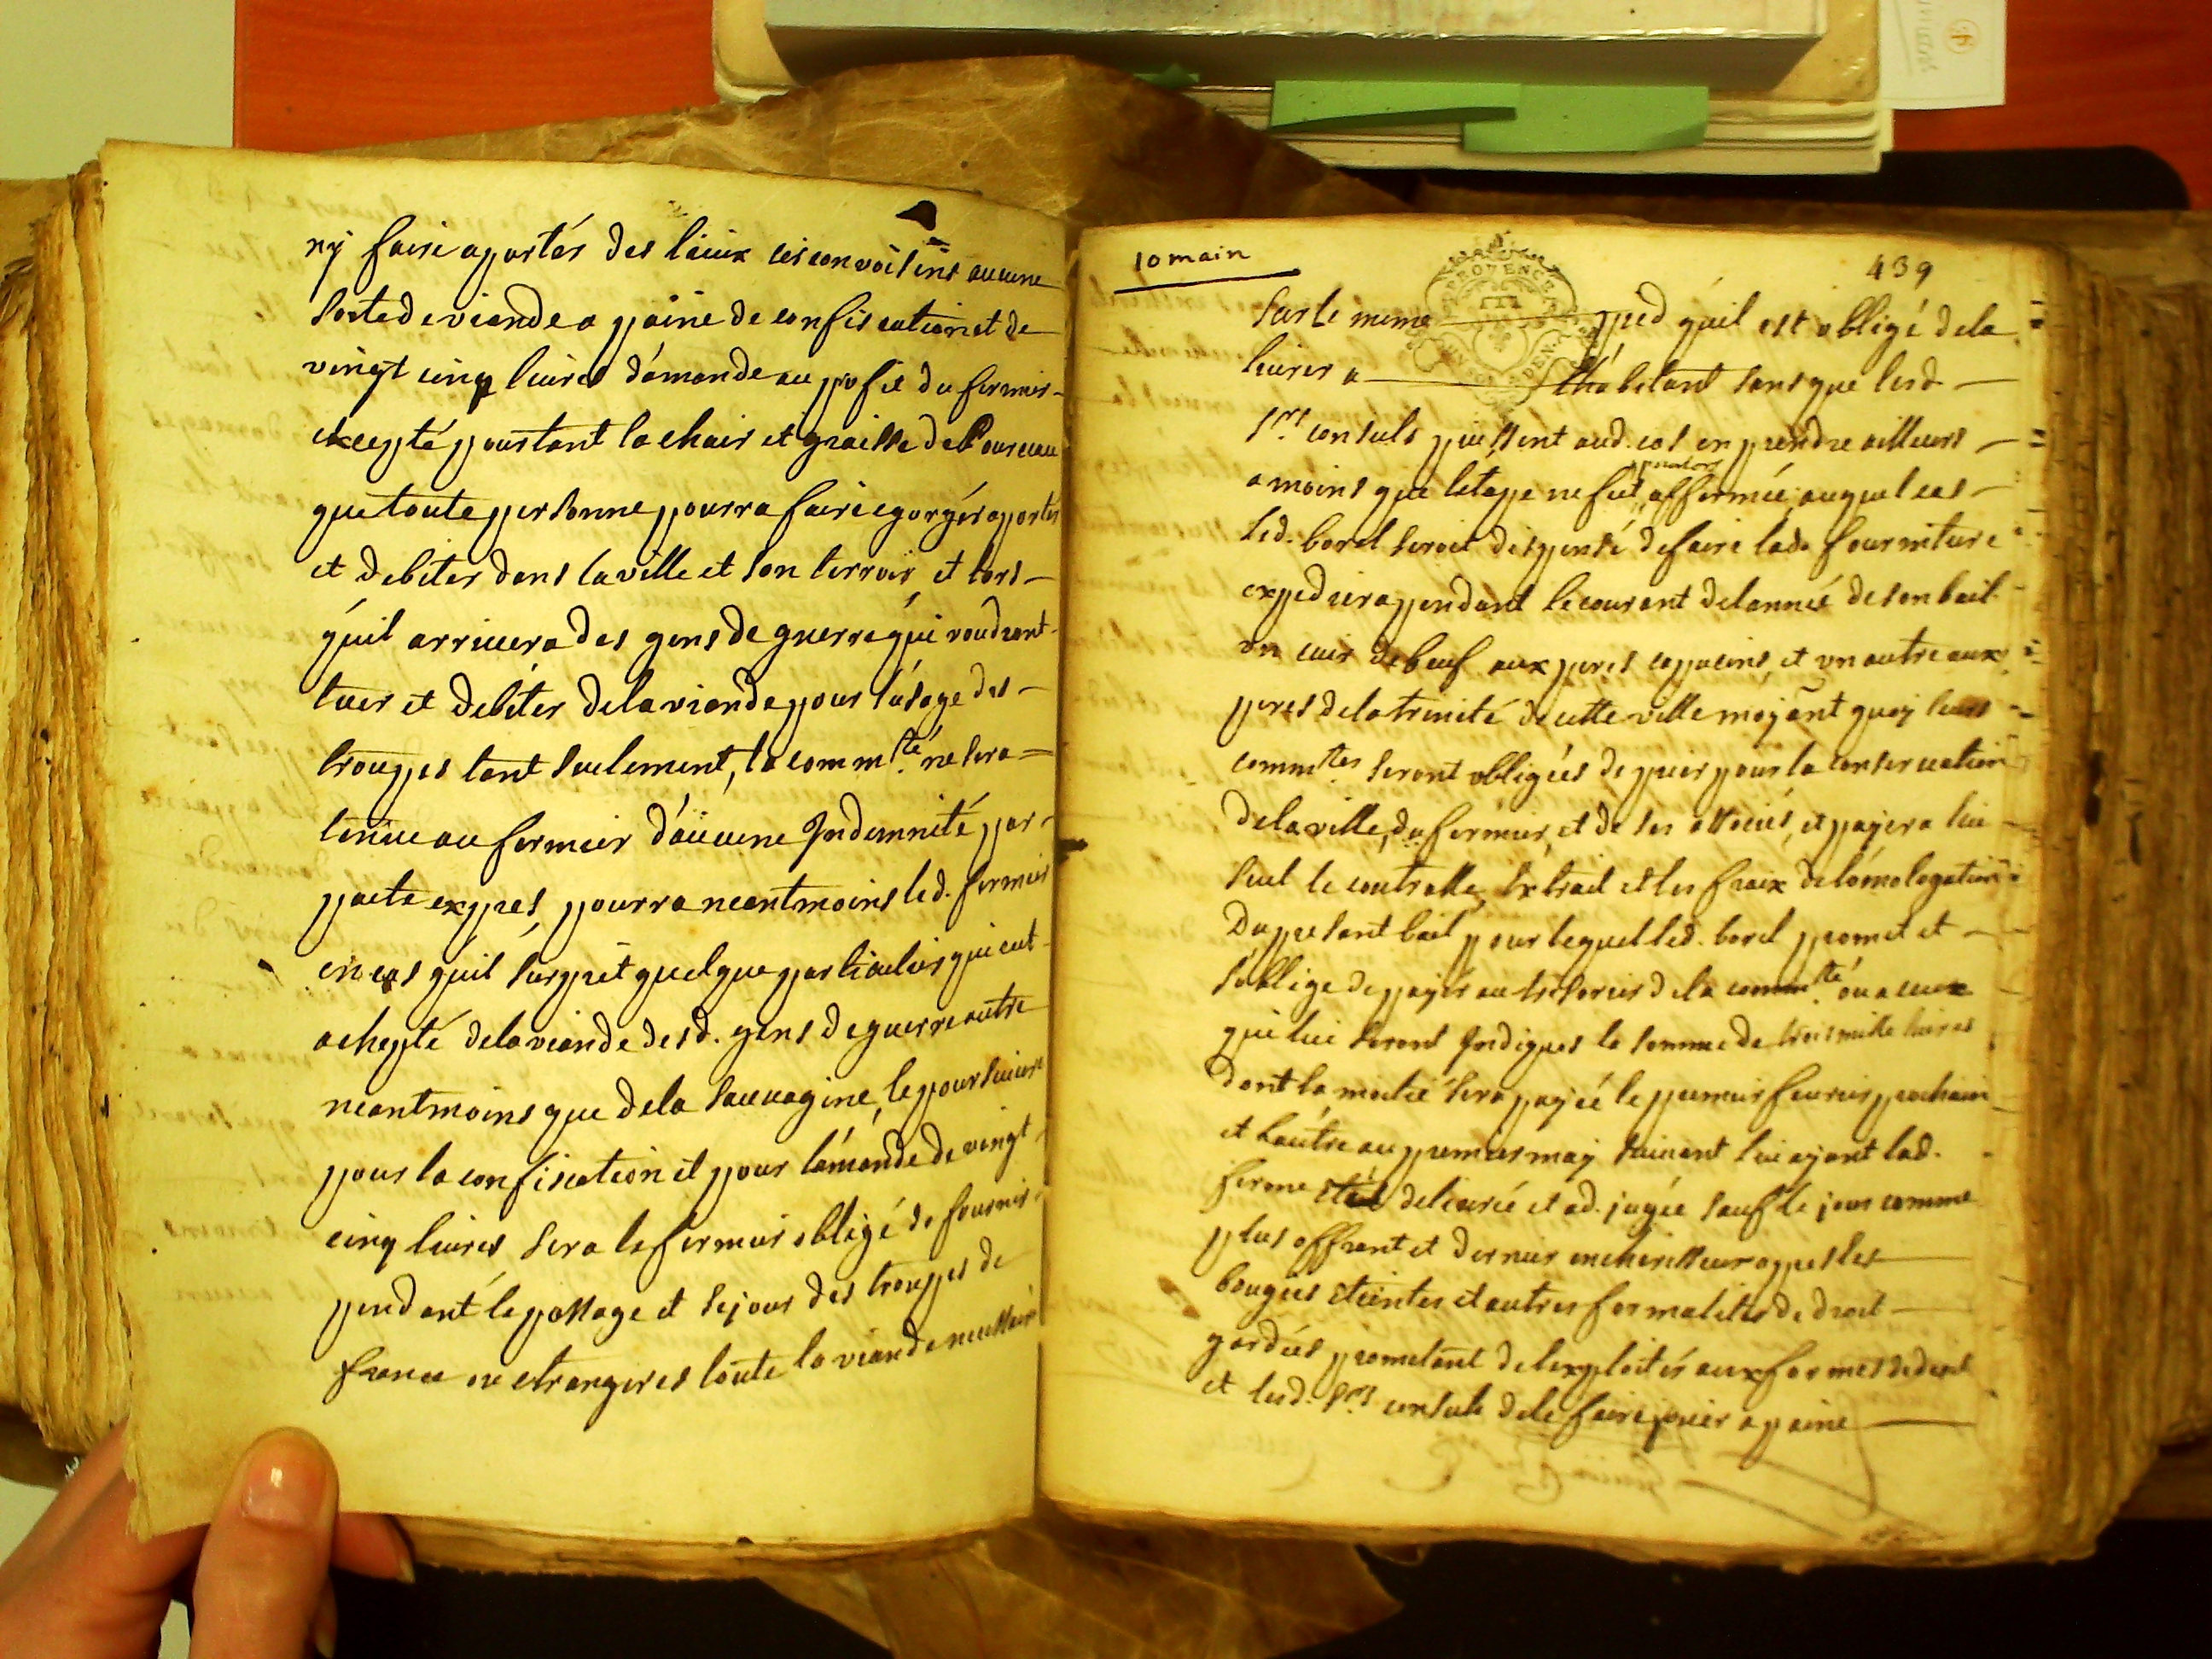 ny faire aportér des lieux circonvoisins aucune
sorte de viande a paine de confiscation et de
vingt cinq livres d'amande au profit du fermier
excepté pourtant la chair et graisse de Pourceau
que toute personne pourra faire egorgér aporter
et debiter dans la ville et son terroir et lors
qu'il arrivera des gens de guerre qui voudront
tuer et debiter de la viande pour l'usage des
trouppes tant seulement, la comm.té ne sera
tenue au fermier d'aucune Indemnité par
pacte exprés, pourra neantmoins led. fermier
en cas qu'il surprit quelque particulier qui eut
achepté de la viande desd. gens de guerre autre
neantmoins que de la sauvagine, le poursuivre
pour la confiscation et pour l'amande de vingt
cinq livres sera le fermier obligé de fournir
pendant le passage et sejour des trouppes de
france ou etrangeres toute la viande necessaire
10 main
439
PROVENCE
DEN.
sur le meme pied qu'il est obligé de la
livrer a l'habitant sans que lesd
Srs consuls puissent aud. cas en prendre ailleurs
a moins que l'etape ne fut affermée, auquel cas
led. borel seroit dispensé de faire lad. fourniture
expediera pendant le courant de l'année de son bail
un cuir de beuf aux peres capucins, et un autre aux
peres de la trinité de cette ville moyant quoy leurs
comm.tes seront obligées de prier pour la conservation
de la ville, du fermier, et de ses associés, et payera lui
seul le controlle, Extrait et les fraix de l'omologation
Du present bail pour lequel led. borel promet et
s'oblige de payer au tresorier de la comm.té ou a ceux
qui lui seront Indiques la somme de trois mille livres
dont la moitié sera payée le premier fevrier prochain
et l'autre au premier may suivant lui ayant lad.
ferme eté delivrée et ad.jugée sauf le jour comme
plus offrant et dernier encherisseur apres les
bougies eteintes et autres formalites de droit
gardées prometant de l'exploiter aux formes de droit
et lesd. Srs consuls de le faire jouir a paine